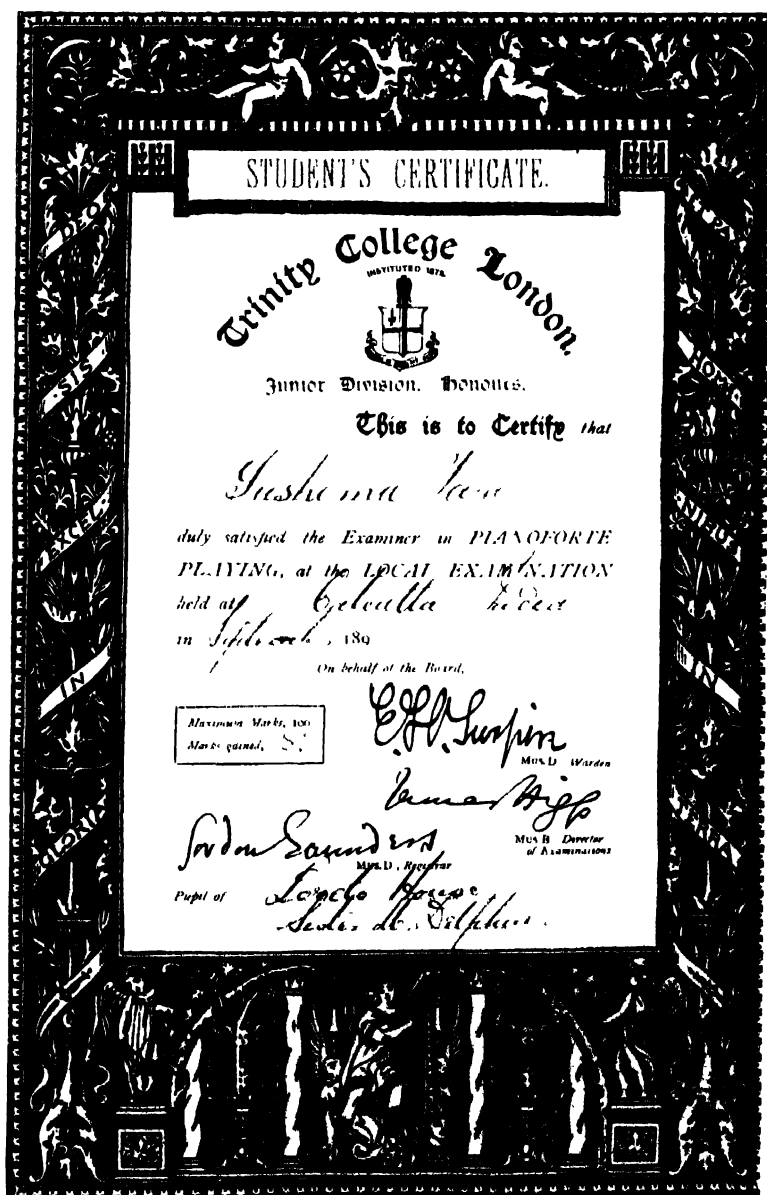 STUDENT'S CERTIFICATE.
Trinity College London.
INSTITUTED 1872.
Junior Division. Honours.
This is to Certify that
Sushama
duly satisfied the Examiner in PIANOFORTE
PLAYING, at the LOCAL EXAMINATION
held at Calcutta
in 189
On behalf of the Board,
Maximum Marks, 100
Marks gained,
E.H. Turpin
Mus.D. Warden
James Higgs
Mus.B. Director
of Examinations
Gordon Saunders
Mus.D., Registrar
Pupil of Loreto House
DEO
SIS
EXCEL
IN
GLORIA
HOM
IN